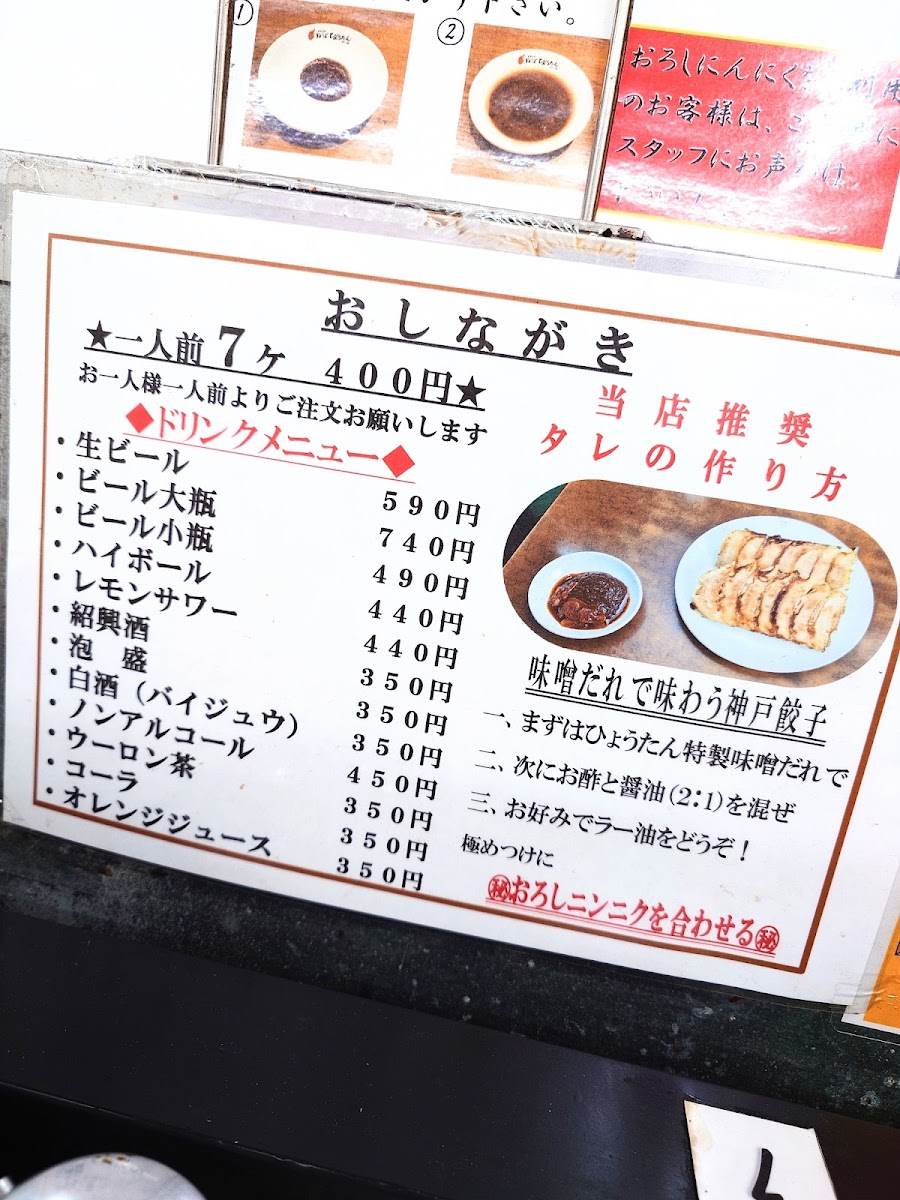 下さい。
①
②
おろしにんにく
のお客様は、
スタッフにお声
おしながき
★一人前7ヶ 400円★
お一人様一人前よりご注文お願いします
◆ドリンクメニュー◆
・生ビール 590円
・ビール大瓶 740円
・ビール小瓶 490円
・ハイボール 440円
・レモンサワー 440円
・紹興酒 350円
・泡 盛 350円
・白酒(バイジュウ) 350円
・ノンアルコール 450円
・ウーロン茶 350円
・コーラ 350円
・オレンジジュース 350円
当店推奨
タレの作り方
味噌だれで味わう神戸餃子
一、まずはひょうたん特製味噌だれで
二、次にお酢と醤油(2:1)を混ぜ
三、お好みでラー油をどうぞ!
極めつけに
㊙おろしニンニクを合わせる㊙